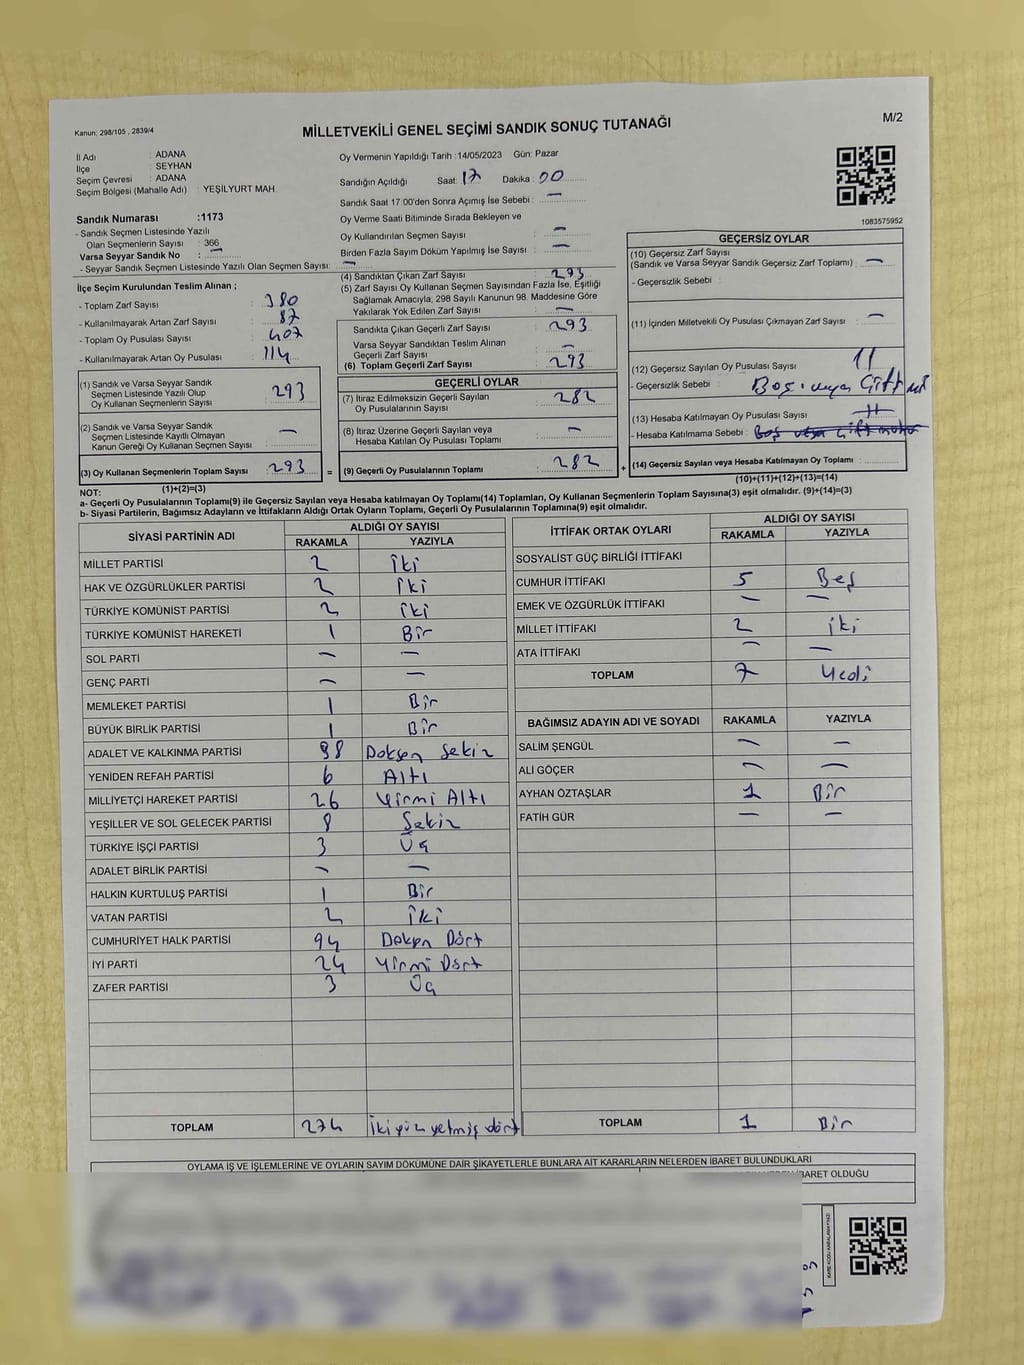 Kanun: 298/105 , 2839/4
MİLLETVEKİLİ GENEL SEÇİMİ SANDIK SONUÇ TUTANAĞI
M/2
İl Adı : ADANA
İlçe : SEYHAN
Seçim Çevresi : ADANA
Seçim Bölgesi (Mahalle Adı) : YEŞİLYURT MAH.
Sandık Numarası :1173
- Sandık Seçmen Listesinde Yazılı
Olan Seçmenlerin Sayısı : 366
Varsa Seyyar Sandık No : —
- Seyyar Sandık Seçmen Listesinde Yazılı Olan Seçmen Sayısı: —
Oy Vermenin Yapıldığı Tarih :14/05/2023 Gün: Pazar
Sandığın Açıldığı Saat: 17 Dakika: 00
Sandık Saat 17:00'den Sonra Açımış İse Sebebi : —
Oy Verme Saati Bitiminde Sırada Bekleyen ve
Oy Kullandırılan Seçmen Sayısı : —
Birden Fazla Sayım Döküm Yapılmış İse Sayısı : —
1083575952
İlçe Seçim Kurulundan Teslim Alınan ;
- Toplam Zarf Sayısı : 380
- Kullanılmayarak Artan Zarf Sayısı : 87
- Toplam Oy Pusulası Sayısı : 407
- Kullanılmayarak Artan Oy Pusulası : 114
(1) Sandık ve Varsa Seyyar Sandık
Seçmen Listesinde Yazılı Olup
Oy Kullanan Seçmenlerin Sayısı : 293
(2) Sandık ve Varsa Seyyar Sandık
Seçmen Listesinde Kayıtlı Olmayan
Kanun Gereği Oy Kullanan Seçmen Sayısı : —
(3) Oy Kullanan Seçmenlerin Toplam Sayısı : 293
(1)+(2)=(3)
(4) Sandıktan Çıkan Zarf Sayısı : 293
(5) Zarf Sayısı Oy Kullanan Seçmen Sayısından Fazla İse, Eşitliği
Sağlamak Amacıyla, 298 Sayılı Kanunun 98. Maddesine Göre
Yakılarak Yok Edilen Zarf Sayısı : —
Sandıkta Çıkan Geçerli Zarf Sayısı : 293
Varsa Seyyar Sandıktan Teslim Alınan
Geçerli Zarf Sayısı : —
(6) Toplam Geçerli Zarf Sayısı : 293
GEÇERLİ OYLAR
(7) İtiraz Edilmeksizin Geçerli Sayılan
Oy Pusulalarının Sayısı : 282
(8) İtiraz Üzerine Geçerli Sayılan veya
Hesaba Katılan Oy Pusulası Toplamı : —
= (9) Geçerli Oy Pusulalarının Toplamı : 282 +
GEÇERSİZ OYLAR
(10) Geçersiz Zarf Sayısı
(Sandık ve Varsa Seyyar Sandık Geçersiz Zarf Toplamı) : —
- Geçersizlik Sebebi :
(11) İçinden Milletvekili Oy Pusulası Çıkmayan Zarf Sayısı : —
(12) Geçersiz Sayılan Oy Pusulası Sayısı : 11
- Geçersizlik Sebebi : Boş veya Çift
(13) Hesaba Katılmayan Oy Pusulası Sayısı :
- Hesaba Katılmama Sebebi : Boş veya çift
(14) Geçersiz Sayılan veya Hesaba Katılmayan Oy Toplamı :
(10)+(11)+(12)+(13)=(14)
NOT:
a- Geçerli Oy Pusulalarının Toplamı(9) ile Geçersiz Sayılan veya Hesaba katılmayan Oy Toplamı(14) Toplamları, Oy Kullanan Seçmenlerin Toplam Sayısına(3) eşit olmalıdır. (9)+(14)=(3)
b- Siyasi Partilerin, Bağımsız Adayların ve İttifakların Aldığı Ortak Oyların Toplamı, Geçerli Oy Pusulalarının Toplamına(9) eşit olmalıdır.
SİYASİ PARTİNİN ADI ALDIĞI OY SAYISI
RAKAMLA YAZIYLA
MİLLET PARTİSİ 2 iki
HAK VE ÖZGÜRLÜKLER PARTİSİ 2 iki
TÜRKİYE KOMÜNİST PARTİSİ 2 iki
TÜRKİYE KOMÜNİST HAREKETİ 1 Bir
SOL PARTİ — —
GENÇ PARTİ — —
MEMLEKET PARTİSİ 1 Bir
BÜYÜK BİRLİK PARTİSİ 1 Bir
ADALET VE KALKINMA PARTİSİ 98 Doksen Sekiz
YENİDEN REFAH PARTİSİ 6 Altı
MİLLİYETÇİ HAREKET PARTİSİ 26 Yirmi Altı
YEŞİLLER VE SOL GELECEK PARTİSİ 8 Sekiz
TÜRKİYE İŞÇİ PARTİSİ 3 Üç
ADALET BİRLİK PARTİSİ — —
HALKIN KURTULUŞ PARTİSİ 1 Bir
VATAN PARTİSİ 2 iki
CUMHURİYET HALK PARTİSİ 94 Doksen Dört
İYİ PARTİ 24 Yirmi Dört
ZAFER PARTİSİ 3 Üç
TOPLAM 274 iki yüz yetmiş dört
İTTİFAK ORTAK OYLARI ALDIĞI OY SAYISI
RAKAMLA YAZIYLA
SOSYALİST GÜÇ BİRLİĞİ İTTİFAKI
CUMHUR İTTİFAKI 5 Beş
EMEK VE ÖZGÜRLÜK İTTİFAKI — —
MİLLET İTTİFAKI 2 iki
ATA İTTİFAKI — —
TOPLAM 7 Yedi
BAĞIMSIZ ADAYIN ADI VE SOYADI RAKAMLA YAZIYLA
SALİM ŞENGÜL — —
ALİ GÖÇER — —
AYHAN ÖZTAŞLAR 1 Bir
FATİH GÜR — —
TOPLAM 1 Bir
OYLAMA İŞ VE İŞLEMLERİNE VE OYLARIN SAYIM DÖKÜMÜNE DAİR ŞİKAYETLERLE BUNLARA AİT KARARLARIN NELERDEN İBARET BULUNDUKLARI
İBARET OLDUĞU